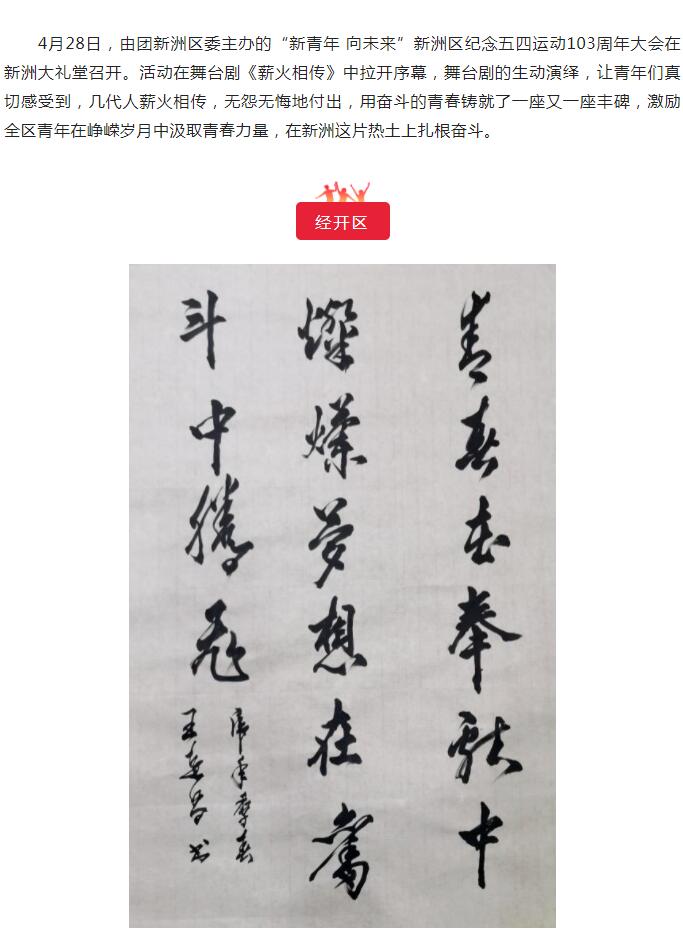 4月28日，由团新洲区委主办的“新青年 向未来”新洲区纪念五四运动103周年大会在
新洲大礼堂召开。活动在舞台剧《薪火相传》中拉开序幕，舞台剧的生动演绎，让青年们真
切感受到，几代人薪火相传，无怨无悔地付出，用奋斗的青春铸就了一座又一座丰碑，激励
全区青年在峥嵘岁月中汲取青春力量，在新洲这片热土上扎根奋斗。
经开区
青春在奉献中
燦爛夢想在奮
斗中騰飛
季春
王
书